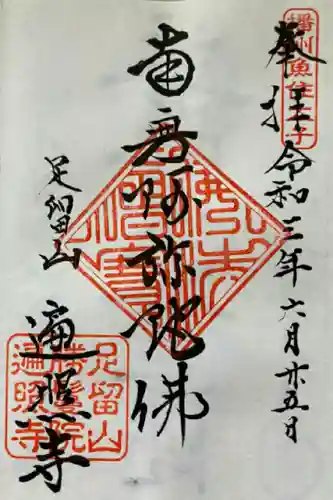 奉拝 令和三年六月廿五日
播州魚住
南無阿弥陀佛
足留山
遍照寺
足留山
勝鬘院
遍照寺